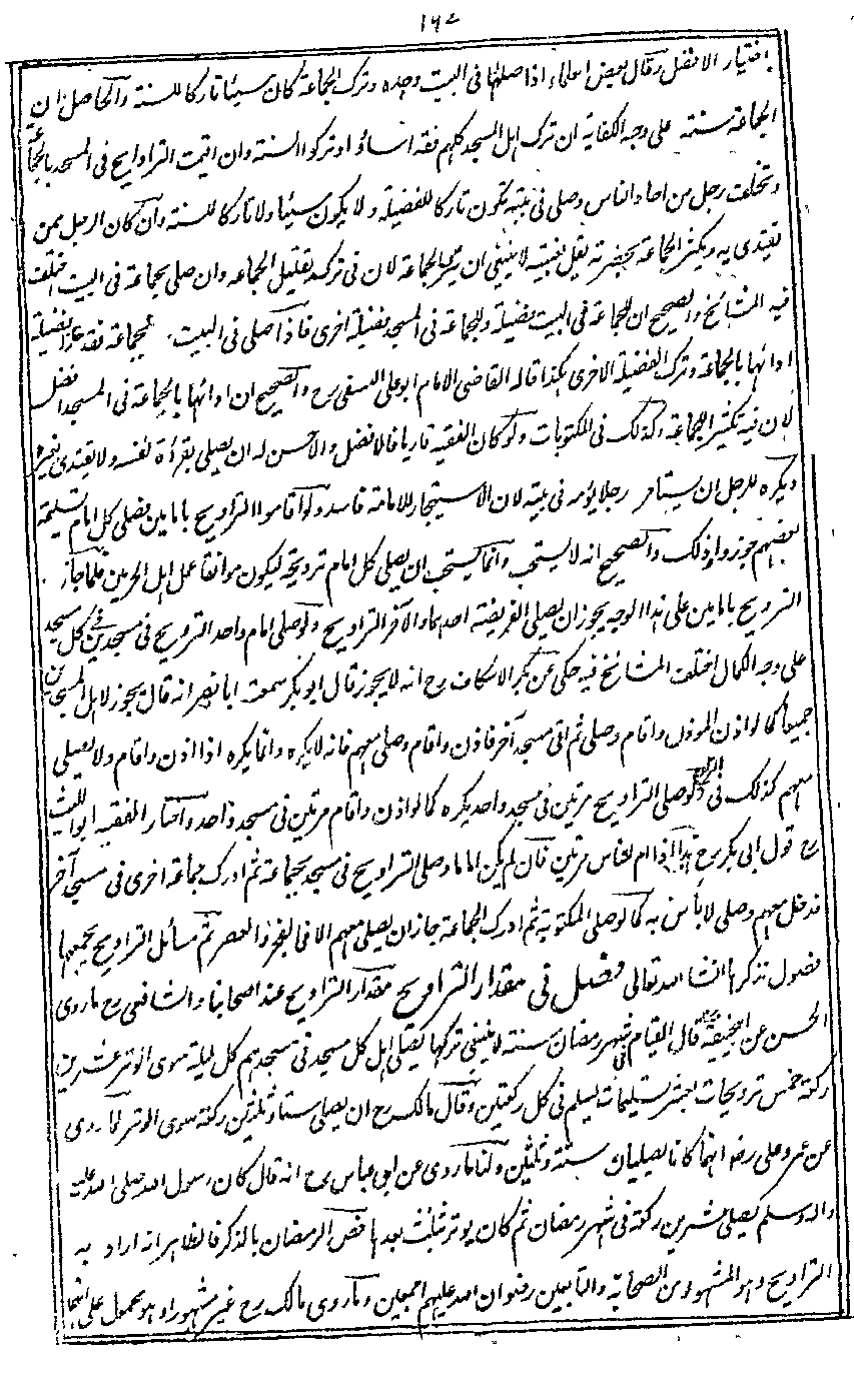 ١٦٤
اختيار الافضل وقال بعض العلماء اذا صلاها فى البيت وحده وترك الجماعة كان مسيئا تاركا للسنة والحاصل ان
الجماعة سنة على وجه الكفاية ان ترك اهل المسجد كلهم فقد اساؤا وتركوا السنة وان اقيمت التراويح فى المسجد بالجماعة
وتخلف رجل من احاد الناس وصلى فى بيته يكون تاركا للفضيلة ولا يكون مسيئا ولا تاركا للسنة وان كان الرجل ممن
يقتدى به ويكثر الجماعة بحضرته يقل بغيبته لا ينبغى ان يترك الجماعة لان فى تركه تقليل الجماعة وان صلى بجماعة فى البيت اختلف
فيه المشائخ والصحيح ان للجماعة فى البيت فضيلة وللجماعة فى المسجد فضيلة اخرى فاذا صلى فى البيت بجماعة فقد حاز فضيلة
ادائها بالجماعة وترك الفضيلة الاخرى هكذا قاله القاضى الامام ابو على النسفى رح والصحيح ان ادائها بالجماعة فى المسجد افضل
لان فيه تكثير الجماعة وكذلك فى المكتوبات ولو كان الفقيه قاريا فالافضل والاحسن له ان يصلى بقرأة نفسه ولا يقتدى بغيره
ويكره للرجل ان يستاجر رجلا يؤمه فى بيته لان الاستيجار للامامة فاسد ولو اقاموا التراويح بامامين فصلى كل امام تسليمة
بعضهم جوزوا ذلك والصحيح انه لا يستحب وانما يستحب ان يصلى كل امام ترويحة ليكون موافقا عمل اهل الحرمين فلما جاز
التراويح بامامين على هذا الوجه يجوز ان يصلى الفريضة احدهما والآخر التراويح ولو صلى امام واحد التراويح فى مسجدين فى كل مسجد
على وجه الكمال اختلف المشائخ فيه حكى عن ابى بكر الاسكاف رح انه لا يجوز قال ابو بكر سمعت ابا نصر انه قال يجوز لاهل المسجدين
جميعا كما لو اذن المؤذن واقام وصلى ثم اتى مسجد آخر فاذن واقام وصلى معهم فانه لا يكره وانما يكره اذا اذن واقام ولا يصلى
معهم كذلك فى التراويح ولو صلى التراويح مرتين فى مسجد واحد يكره كما لو اذن واقام مرتين فى مسجد واحد واختار الفقيه ابو الليث
رح قول ابى بكر رح هذا اذا ام للناس مرتين فان لم يكن اماما وصلى التراويح فى مسجد بجماعة ثم ادرك جماعة اخرى فى مسجد آخر
فدخل معهم وصلى لا بأس به كما لو صلى المكتوبة ثم ادرك الجماعة جاز ان يصلى معهم الا فى الفجر والعصر ثم مسائل التراويح يجمعها
فصول نذكرها انشاء الله تعالى فصل فى مقدار التراويح مقدار التراويح عند اصحابنا والشافعى رح ما روى
الحسن عن ابيحنيفة رح قال القيام فى شهر رمضان سنة لا ينبغى تركها يصلى اهل كل مسجد فى مسجدهم كل ليلة سوى الوتر عشرين
ركعة خمس ترويحات بعشر تسليمات يسلم فى كل ركعتين وقال مالك رح ان يصلى ستا وثلثين ركعة سوى الوتر لما روى
عن عمر وعلى رض انهما كانا يصليان ستة وثلثين ولنا ما روى عن ابن عباس رح انه قال كان رسول الله صلى الله عليه
واله وسلم يصلى عشرين ركعة فى شهر رمضان ثم كان يوتر بثلث بعدها خص الرمضان بالذكر فالظاهر انه اراد به
التراويح وهو المشهور من الصحابة والتابعين رضوان الله عليهم اجمعين وما روى مالك رح غير مشهور او هو محمول على انهما